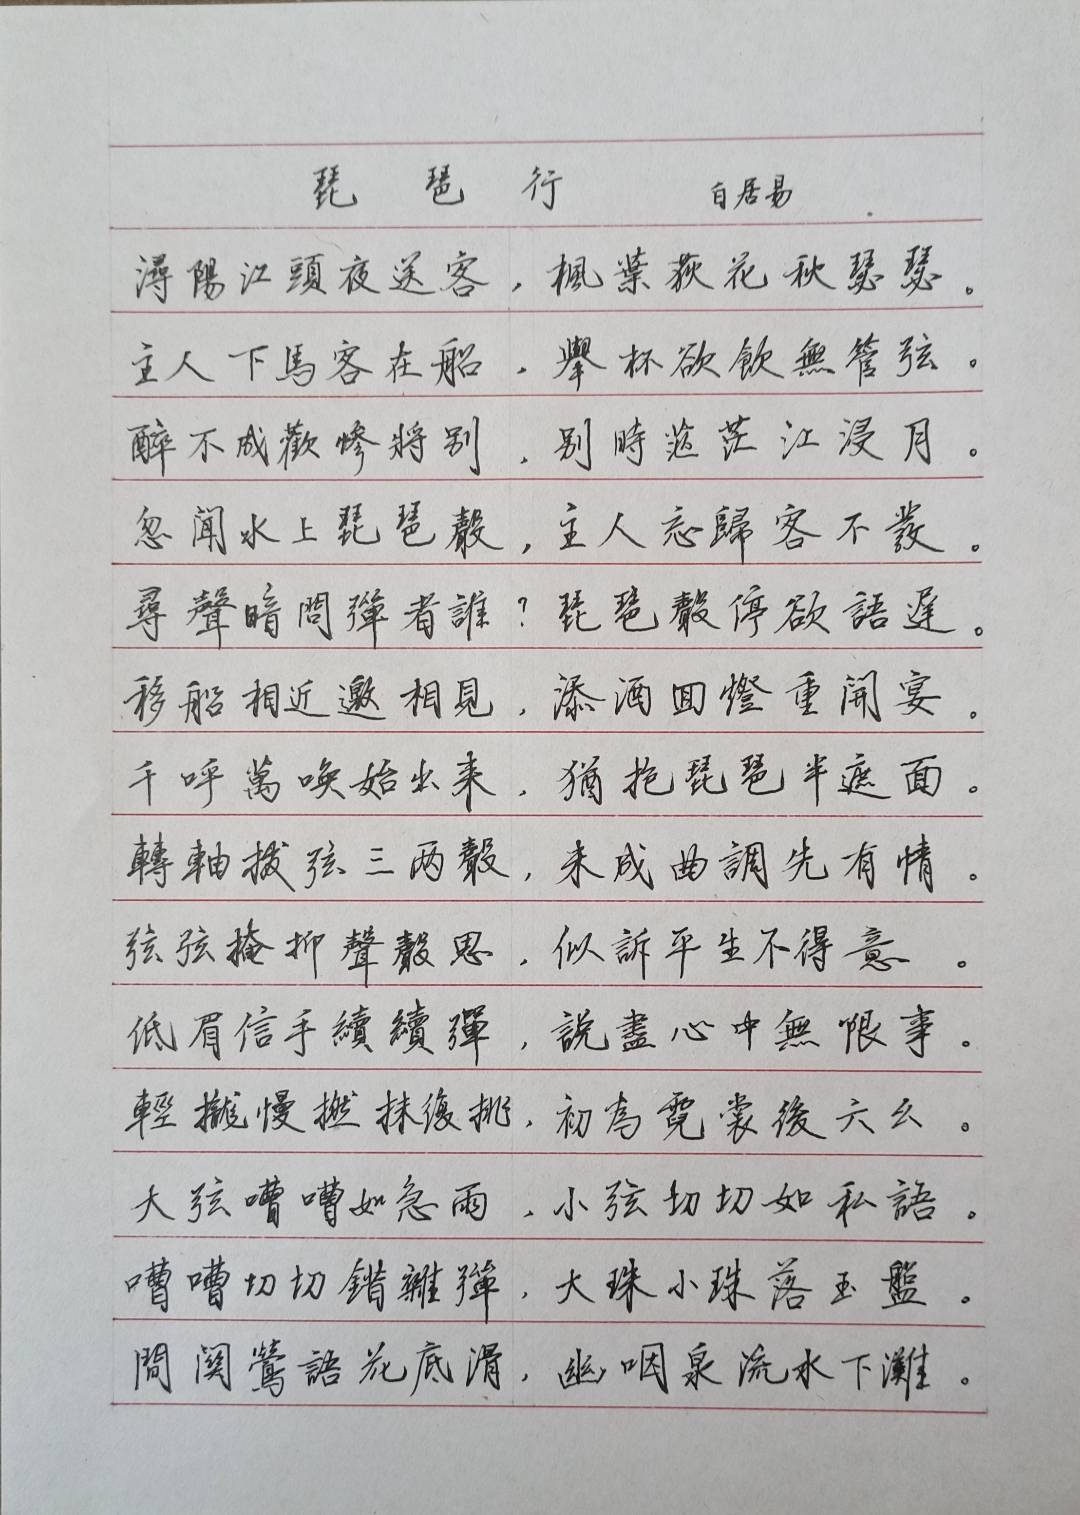 琵琶行 白居易
潯陽江頭夜送客，楓葉荻花秋瑟瑟。
主人下馬客在船，舉杯欲飲無管弦。
醉不成歡慘將别，别時茫茫江浸月。
忽聞水上琵琶聲，主人忘歸客不發。
尋聲暗問彈者誰？琵琶聲停欲語遲。
移船相近邀相見，添酒回燈重開宴。
千呼萬喚始出来，猶抱琵琶半遮面。
轉軸撥弦三两聲，未成曲調先有情。
弦弦掩抑聲聲思，似訴平生不得意。
低眉信手續續彈，說盡心中無限事。
輕攏慢撚抹復挑，初為霓裳後六么。
大弦嘈嘈如急雨，小弦切切如私語。
嘈嘈切切錯雜彈，大珠小珠落玉盤。
間関鶯語花底滑，幽咽泉流水下灘。